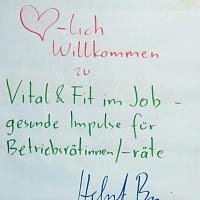 -lich
Willkommen
zu
Vital & Fit im Job -
gesunde Impulse für
Betriebsrätinnen/-räte